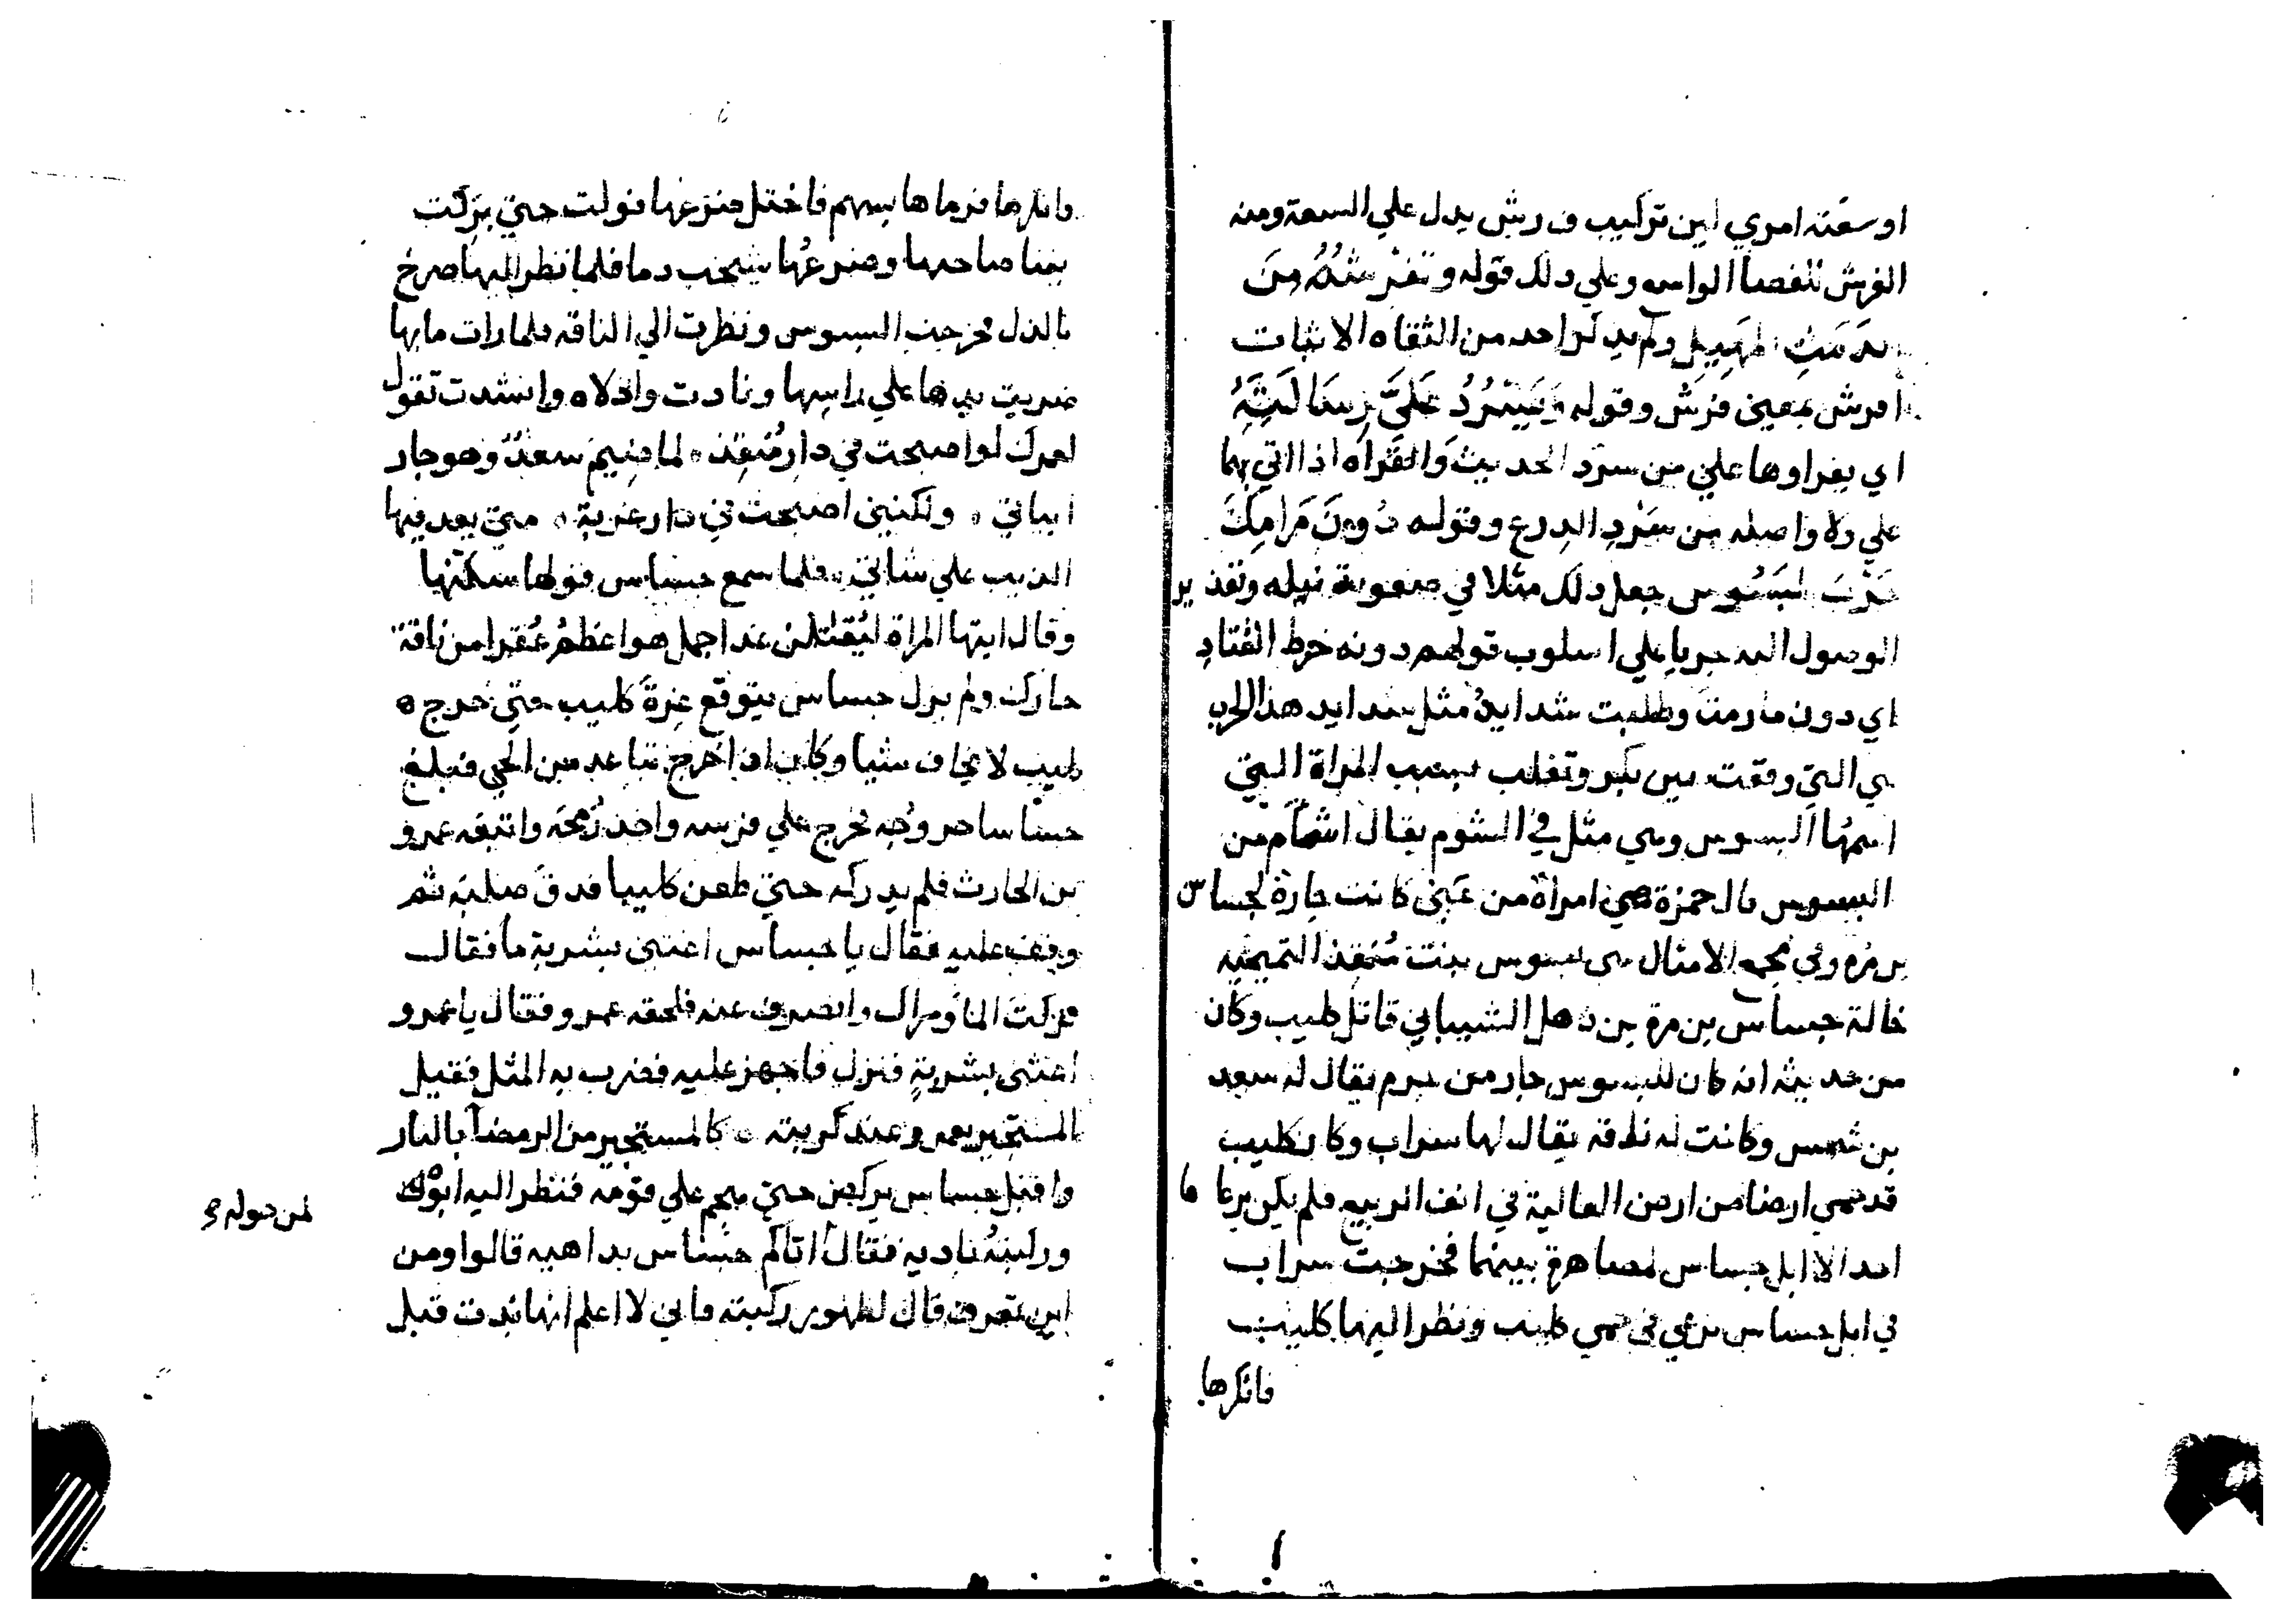 اوسعته امري لين تركيب ف رش يدل علي السعة ومنه
الفرش للفضاا الواسع وعلي ذلك قوله وتفرشه من
ولم يذكر احد من الثقاه الاثبات
افرش بمعني فرش وقوله وَيَسْرُدُ عَلَيَّ رسالته
اي يقراوها علي من سرد الحديث والقراه اذا اتي بها
علي ولا واصله من سَرْدِ الدرع وقوله دُونَ مَرَامِكَ
حَرْبُ البَسُوس جعل ذلك مثلا في صعوبة نيله وتعذير
الوصول اليه جريا علي اسلوب قولهم دونه خرط القتادِ
اي دون ما رمت وطلبت شدايد مثل شدايد هذا الحرب
هي التي وقعت بين بكر وتغلب بسبب المراة التي
اسمها البسوس وهي مثل في الشوم يقال اشام من
البسوس قال حمزة هي امراة من غني كانت جارة لجساس
بن مره وفي مجمع الامثال هي بسوس بنت مُنقِذ التميميه
خالة جساس بن مرة بن ذهل الشيباني قاتل كليب وكان
من حديثه انه كان للبسوس جار من جرم يقال له سعد
بن شمس وكانت له ناقه يقال لها سراب وكان كليب
قد حمي ارضا من ارض العالية في انف الربيع فلم يكن يرعاها
احد الا ابل جساس لمصاهرة بينهما فخرجت سراب
في ابل جساس ترعي في حمي كليب ونظر اليها كليب
فانكرها
فانكرها فرماها بسهم فاختل ضرعها فولت حتي بركت
بفنا صاحبها وضرعُها يشخب دما فلما نظر اليها صرخ
بالذل فخرجت البسوس ونظرت الي الناقه فلما رات ما بها
ضربت يدها علي راسها ونادت واذلاه وانشدت تقول
لعمرك لو اصبحت في دار مُنقِذ ٥ لما ضيم سعدٌ وهو جار
ابياتي ٥ ولكنني اصبحت في دار غربة ٥ متي يعد فيها
الذيب علي شاتي ٥ فلما سمع جساس قولها سكتها
وقال ايتها المراة ليُقتلن غدا جمل هو اعظمُ عَقرا من ناقة
جارك ولم يزل جساس يتوقع غرة كليب حتي خرج ٥
كليب لا يخاف شيا وكان اذا خرج تباعد من الحي فبلغ
جساسا خروجه فخرج علي فرسه واخذ رُمحه واتبعه عمرو
بن الحارث فلم يدركه حتي طعن كليبا فدق صلبه ثم
وقف عليه فقال يا جساس اغثني بشربة ما فقال
تركت الما وراك وانصرف عنه فلحقه عمرو فقال يا عمرو
اغثني بشربةٍ فنزل فاجهز عليه فضرب به المثل فقيل
المستجير بعمرو عند كربته ٥ كالمستجير من الرمضا بالنار
واقبل جساس يركض حتي هجم علي قومه فنظر اليه ابوه
لمن حوله
وركبته بادية فقال اتاكم جساس بداهيه قالوا ومن
اين تعرف قال لظهور ركبته فاني لا اعلم انها بدت قبل